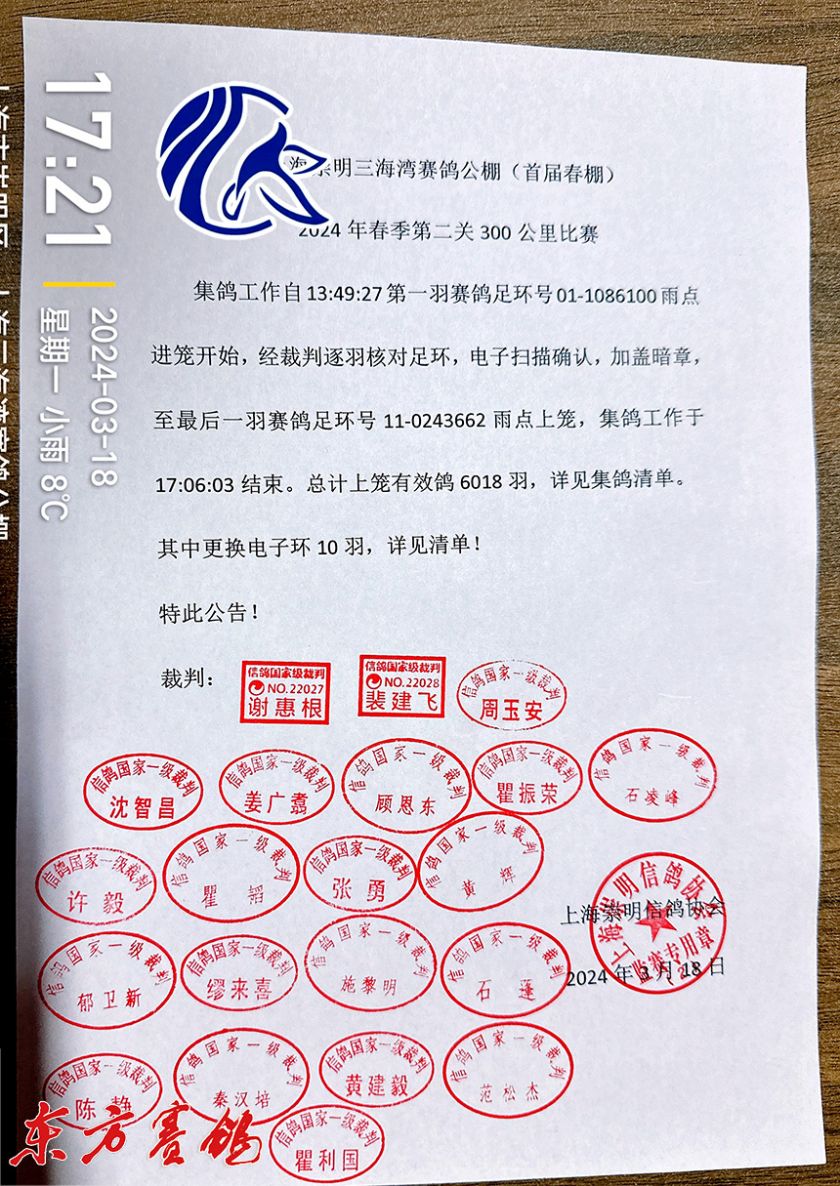 海崇明三海湾赛鸽公棚（首届春棚）
2024 年春季第二关 300 公里比赛
集鸽工作自 13:49:27 第一羽赛鸽足环号 01-1086100 雨点
进笼开始，经裁判逐羽核对足环，电子扫描确认，加盖暗章，
至最后一羽赛鸽足环号 11-0243662 雨点上笼，集鸽工作于
17:06:03 结束。总计上笼有效鸽 6018 羽，详见集鸽清单。
其中更换电子环 10 羽，详见清单！
特此公告！
裁判：
信鸽国家级裁判
NO.22027
谢惠根
信鸽国家级裁判
NO.22028
裴建飞
信鸽国家一级裁判
周玉安
信鸽国家一级裁判
沈智昌
信鸽国家一级裁判
姜广翥
信鸽国家一级裁判
顾恩东
信鸽国家一级裁判
瞿振荣
信鸽国家一级裁判
石凌峰
信鸽国家一级裁判
许毅
信鸽国家一级裁判
瞿韬
信鸽国家一级裁判
张勇
信鸽国家一级裁判
黄辉
上海崇明信鸽协会
2024 年 3 月 18 日
上海崇明信鸽协会
监赛专用章
信鸽国家一级裁判
郁卫新
信鸽国家一级裁判
缪来喜
信鸽国家一级裁判
施黎明
信鸽国家一级裁判
石蓬
信鸽国家一级裁判
陈静
信鸽国家一级裁判
秦汉培
信鸽国家一级裁判
黄建毅
信鸽国家一级裁判
范松杰
信鸽国家一级裁判
瞿利国
17:21
2024-03-18
星期一 小雨 8℃
东方赛鸽